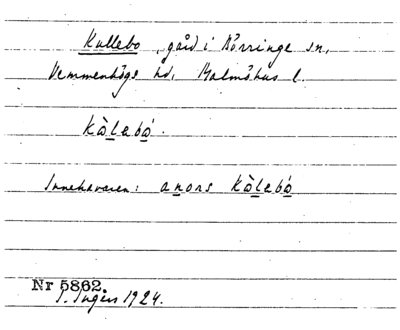 Kullebo, gård i Börringe sn,
Vemmenhögs hd, Malmöhus l.
kàlebó.
Innehavaren: anors kàlebó
Nr 5862.
I. Ingers 1924.